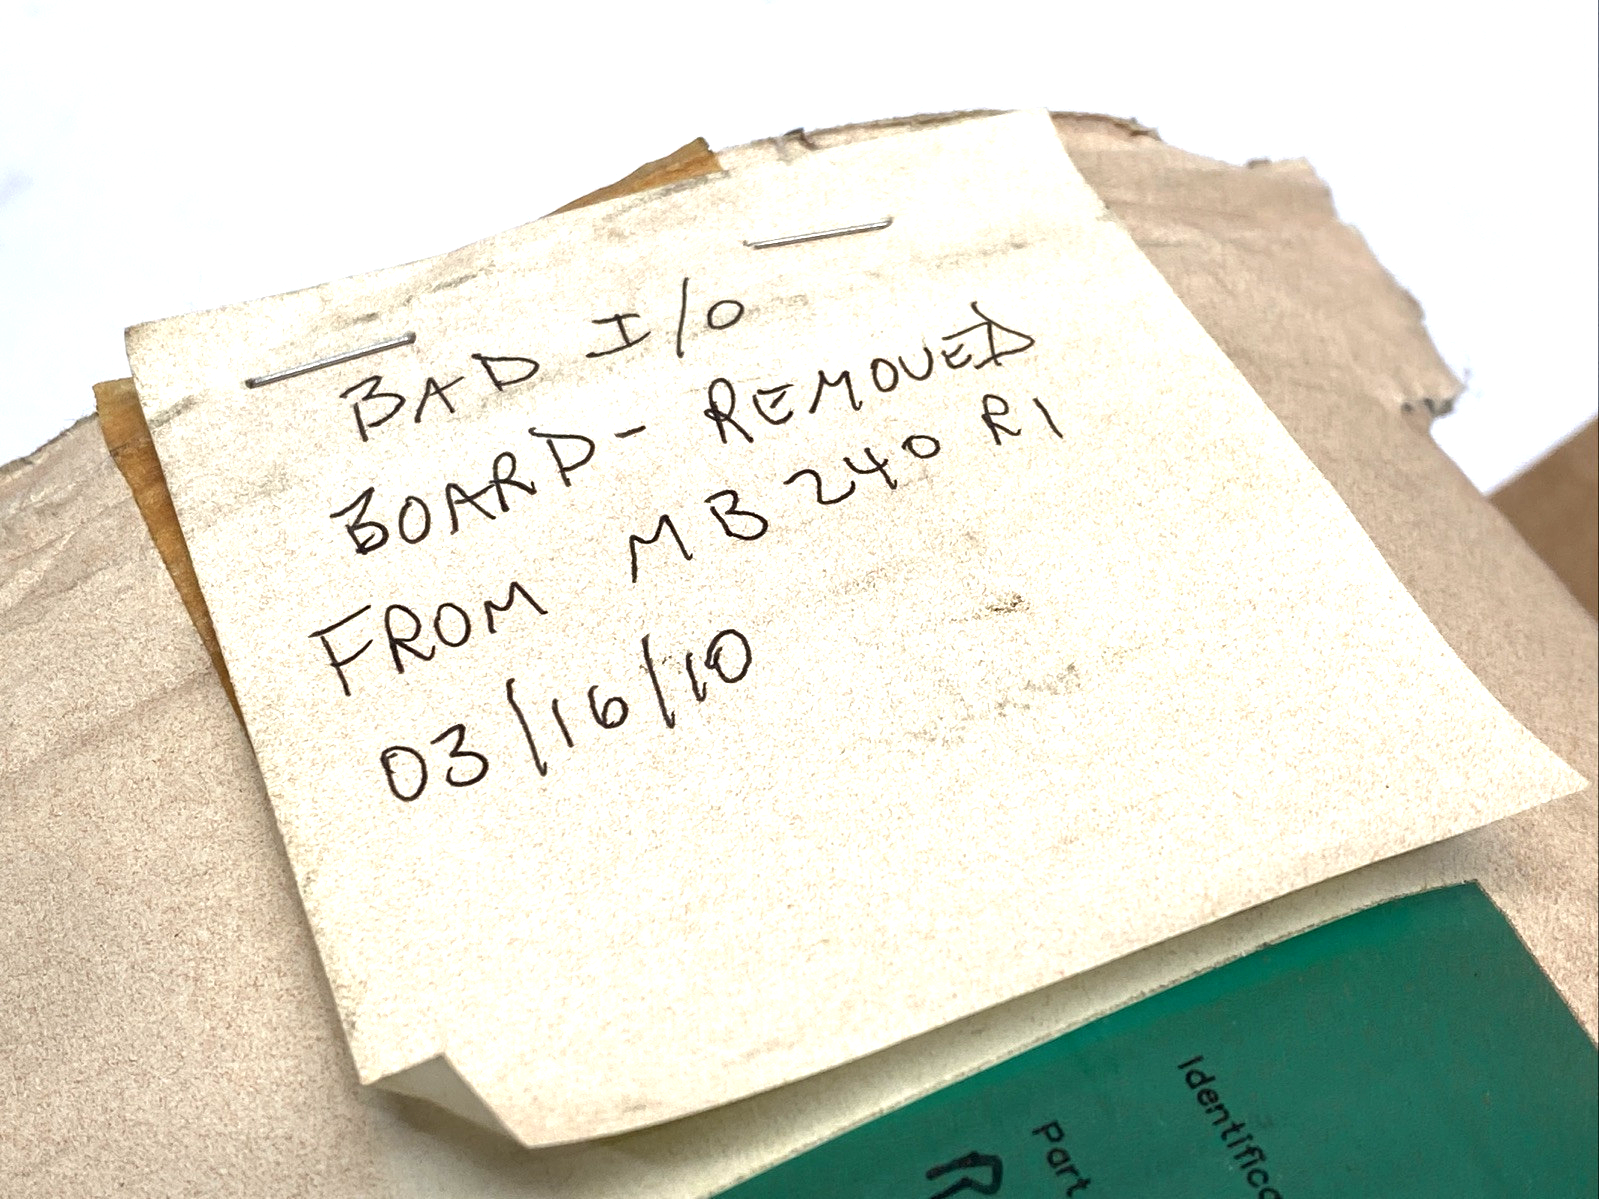 BAD I/O
BOARD - REMOVED
FROM MB 240 R1
03/16/10
Identifica
Part